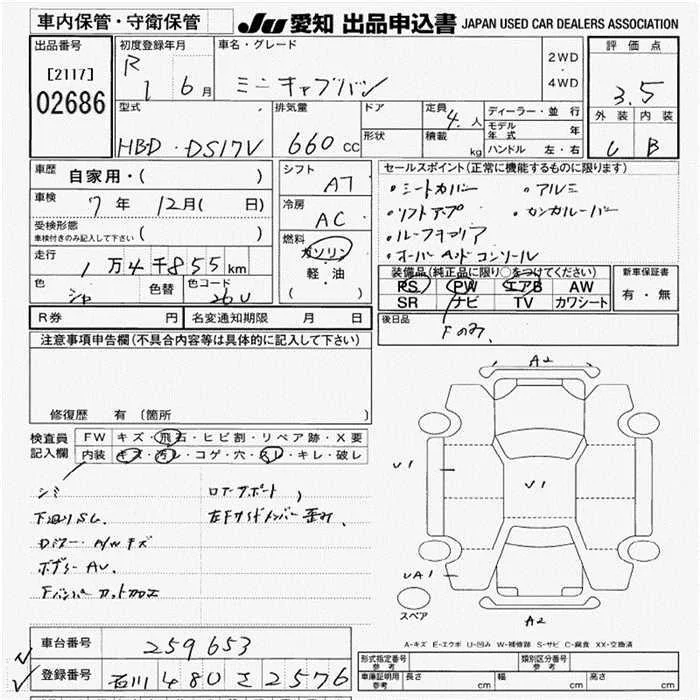 車内保管・守衛保管
JU 愛知 出品申込書 JAPAN USED CAR DEALERS ASSOCIATION
出品番号
[2117]
02686
初度登録年月
R 1 6月
車名・グレード
ミニキャブバン
2WD
・
4WD
評価点
3.5
外装 内装
C B
型式
HBD・DS17V
排気量
660 cc
ドア
形状
定員 4.人
積載 kg
ディーラー・並行
モデル年式 年
ハンドル 左・右
車歴 自家用・( )
車検 7年 12月( 日)
受検形態
車検付きのみ記入して下さい ( )
走行 1万4千855km
色 シャ 色替 色コード 26U
シフト AT
冷房 AC
燃料
ガソリン
軽・油
( )
セールスポイント(正常に機能するものに限ります)
・シートカバー ・アルミ
・リフトアップ ・カンガルーバー
・ルーフキャリア
・オーバーヘッドコンソール
装備品(純正品に限り○をつけてください)
PS PW エアB AW
SR ナビ TV カワシート
新車保証書
有・無
後日品
Fのみ.
R券 円 名変通知期限 月 日
注意事項申告欄(不具合内容等は具体的に記入して下さい)
修復歴 有 〔箇所 〕
検査員
記入欄
FW キズ・飛石・ヒビ割・リペア跡・X要
内装 キズ・汚レ・コゲ・穴・スレ・キレ・破レ
シミ
下廻りSC.
Dミラー・A/Wキズ
ボデーAU.
Fバンパーカット加工
ロアーサポート,
左Fサイドメンバー歪み.
A2
U1
U1
UA1
A2
スペア
A-キズ E-エクボ U-凹み W-補修跡 S-サビ C-腐食 XX-交換済
車台番号 259653
登録番号 石川 480 さ 2576
形式指定番号
参考
類別区分番号
参考
車庫証明用
参考
長さ cm 幅 cm 高さ cm